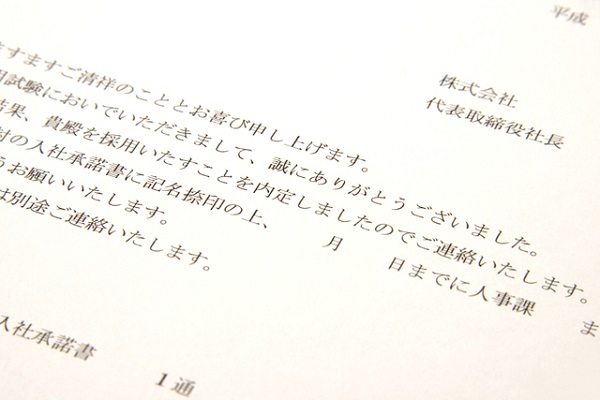 平成
株式会社
代表取締役社長
ますますご清祥のこととお喜び申し上げます。
試験においでいただきまして、誠にありがとうございました。
結果、貴殿を採用いたすことを内定しましたのでご連絡いたします。
付の入社承諾書に記名捺印の上、 月 日までに人事課 ま
うお願いいたします。
は別途ご連絡いたします。
入社承諾書 1通